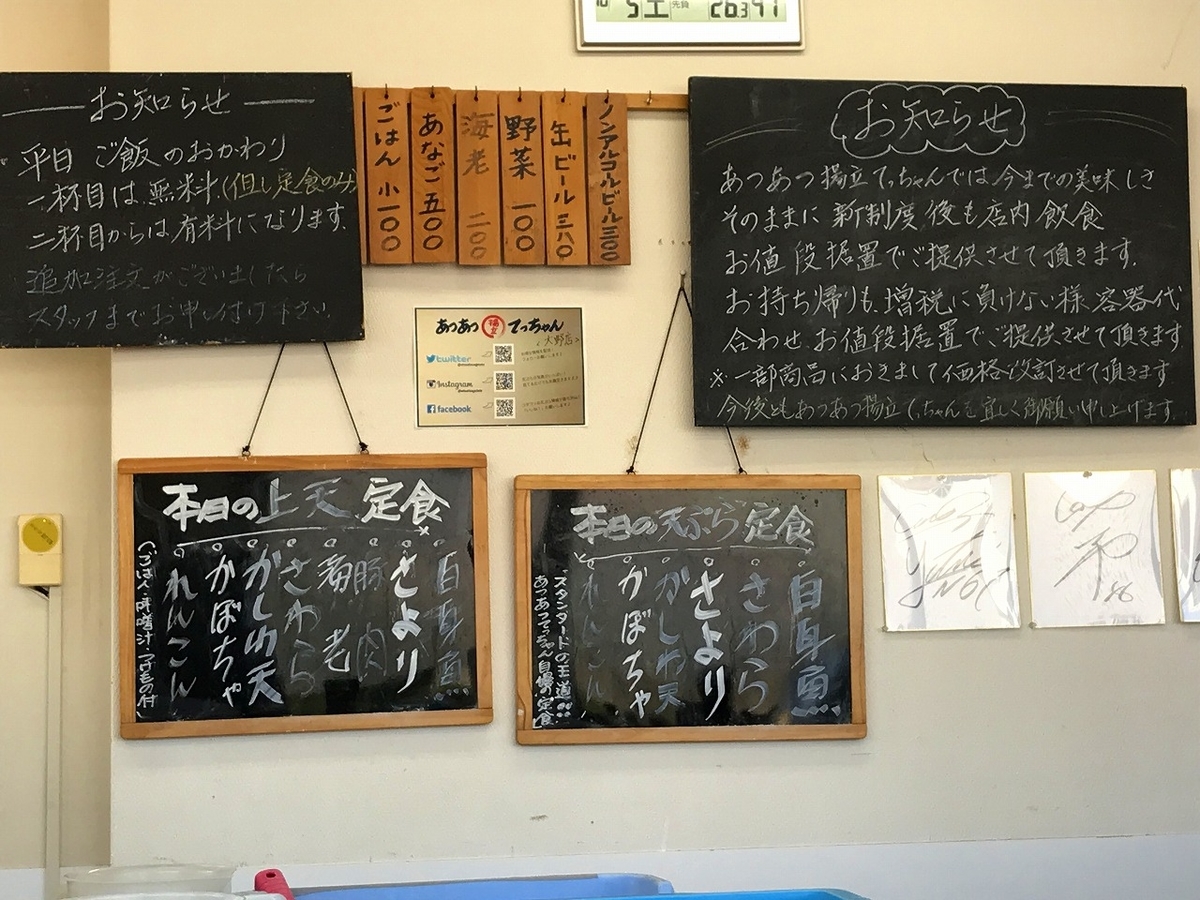 5土 先負 26.3 41
お知らせ
平日 ご飯のおかわり
一杯目は無料(但し定食のみ)
二杯目からは有料になります。
追加注文がございましたら
スタッフまでお申し付け下さい。
ごはん 小 一〇〇
あなご 五〇〇
海老 二〇〇
野菜 一〇〇
缶ビール 三八〇
ノンアルコールビール 三〇〇
お知らせ
あつあつ揚立てっちゃんでは、今までの美味しさ
そのままに 新制度後も店内飲食
お値段据置でご提供させて頂きます。
お持ち帰りも、増税に負けない様、容器代
合わせ、お値段据置でご提供させて頂きます
※一部商品におきまして価格改訂させて頂きます
今後ともあつあつ揚立てっちゃんを宜しく御願い申し上げます。
あつあつ 揚立 てっちゃん
大野店
twitter
Instagram
facebook
本日の上天定食
白身魚
さより
豚肉
海老
さわら
かしわ天
かぼちゃ
れんこん
(ごはん・味噌汁・つけもの付)
本日の天ぷら定食
白身魚
さわら
さより
かしわ天
かぼちゃ
れんこん
スタンダードの王道!!!
あつあつてっちゃん自慢の定食